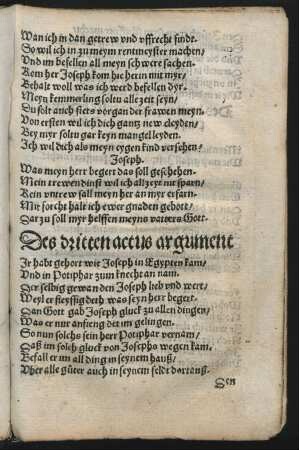 Wan ich in dan getrew vnd vffrecht findt.
So wil ich in zu meym rentmeyster machen/
Vnd im befellen all meyn schwere sachen.
Kom her Joseph kom hie herin mit myr/
Behalt woll was ich werd befellen dyr.
Meyn kemmerling soltu alle zeit seyn/
Du solt auch stets vorgan der frawen meyn.
Von ersten wil ich dich gantz new cleyden/
Bey myr soltu gar keyn mangel leyden.
Ich wil dich als meyn eygen kind versehen/
Joseph.
Was meyn herr begert das soll geschehen.
Mein trewen dinst wil ich all zeyt nit sparn/
Kein vntrew sall meyn her an myr erfarn.
Mit forcht halt ich ewer gnaden gebott/
Dar zu soll myr helffen meyns vaters Gott.
Des dritten actus argument
Ir habt gehort wie Joseph in Egypten kam/
Vnd in Potiphar zum knecht an nam.
Der selbig gewan den Joseph lieb vnd wert/
Weyl er fleyssig deth was seyn herr begert.
Dan Gott gab Joseph gluck zu allen dingen/
Was er nur anfieng det im gelingen.
So nun solchs sein herr Potiphar vernam/
Daß im solch gluck von Josephs wegen kam.
Befall er im all ding in seynem hauß/
Vber alle güter auch in seynem feldt dorauß.
Den